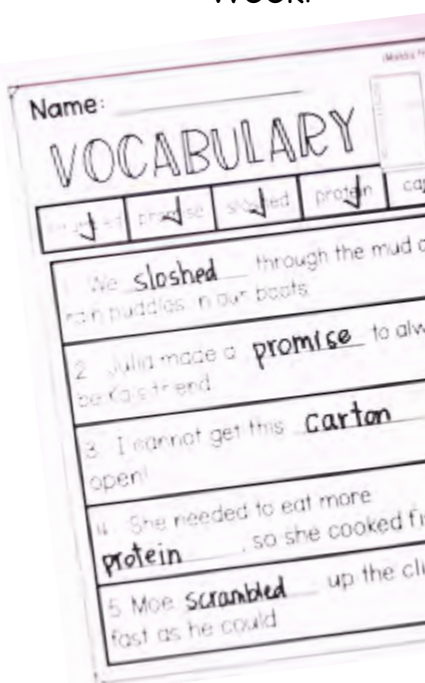 Name:
VOCABULARY
promise sloshed protein
1. We sloshed through the mud
rain puddles in our boots
2. Julia made a promise to
friend
3. I cannot get this carton
open!
4. She needed to eat more
protein, so she cooked
5. Moe scrambled up the
fast as he could